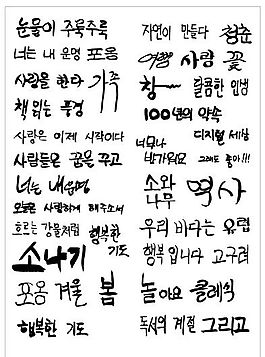 눈물이 주룩주룩
너는 내 운명 포옹
사랑을 한다 가족
책 읽는 풍경
사랑은 이제 시작이다
사람들은 꿈을 꾸고
너는 내 운명
오늘은 사랑하게 해주소서
흐르는 강물처럼 행복한 기도
소나기
포옹 겨울 봄
행복한 기도
자연이 만들다 청춘
여행 사랑 꽃
창~ 달콤한 인생
100년의 약속
너무나 반가워요 디지털 세상
그래도 좋아!!!
소와 나무 역사
우리 바다는 유럽
행복입니다 고구려
놀아요 클래식
독서의 계절 그리고